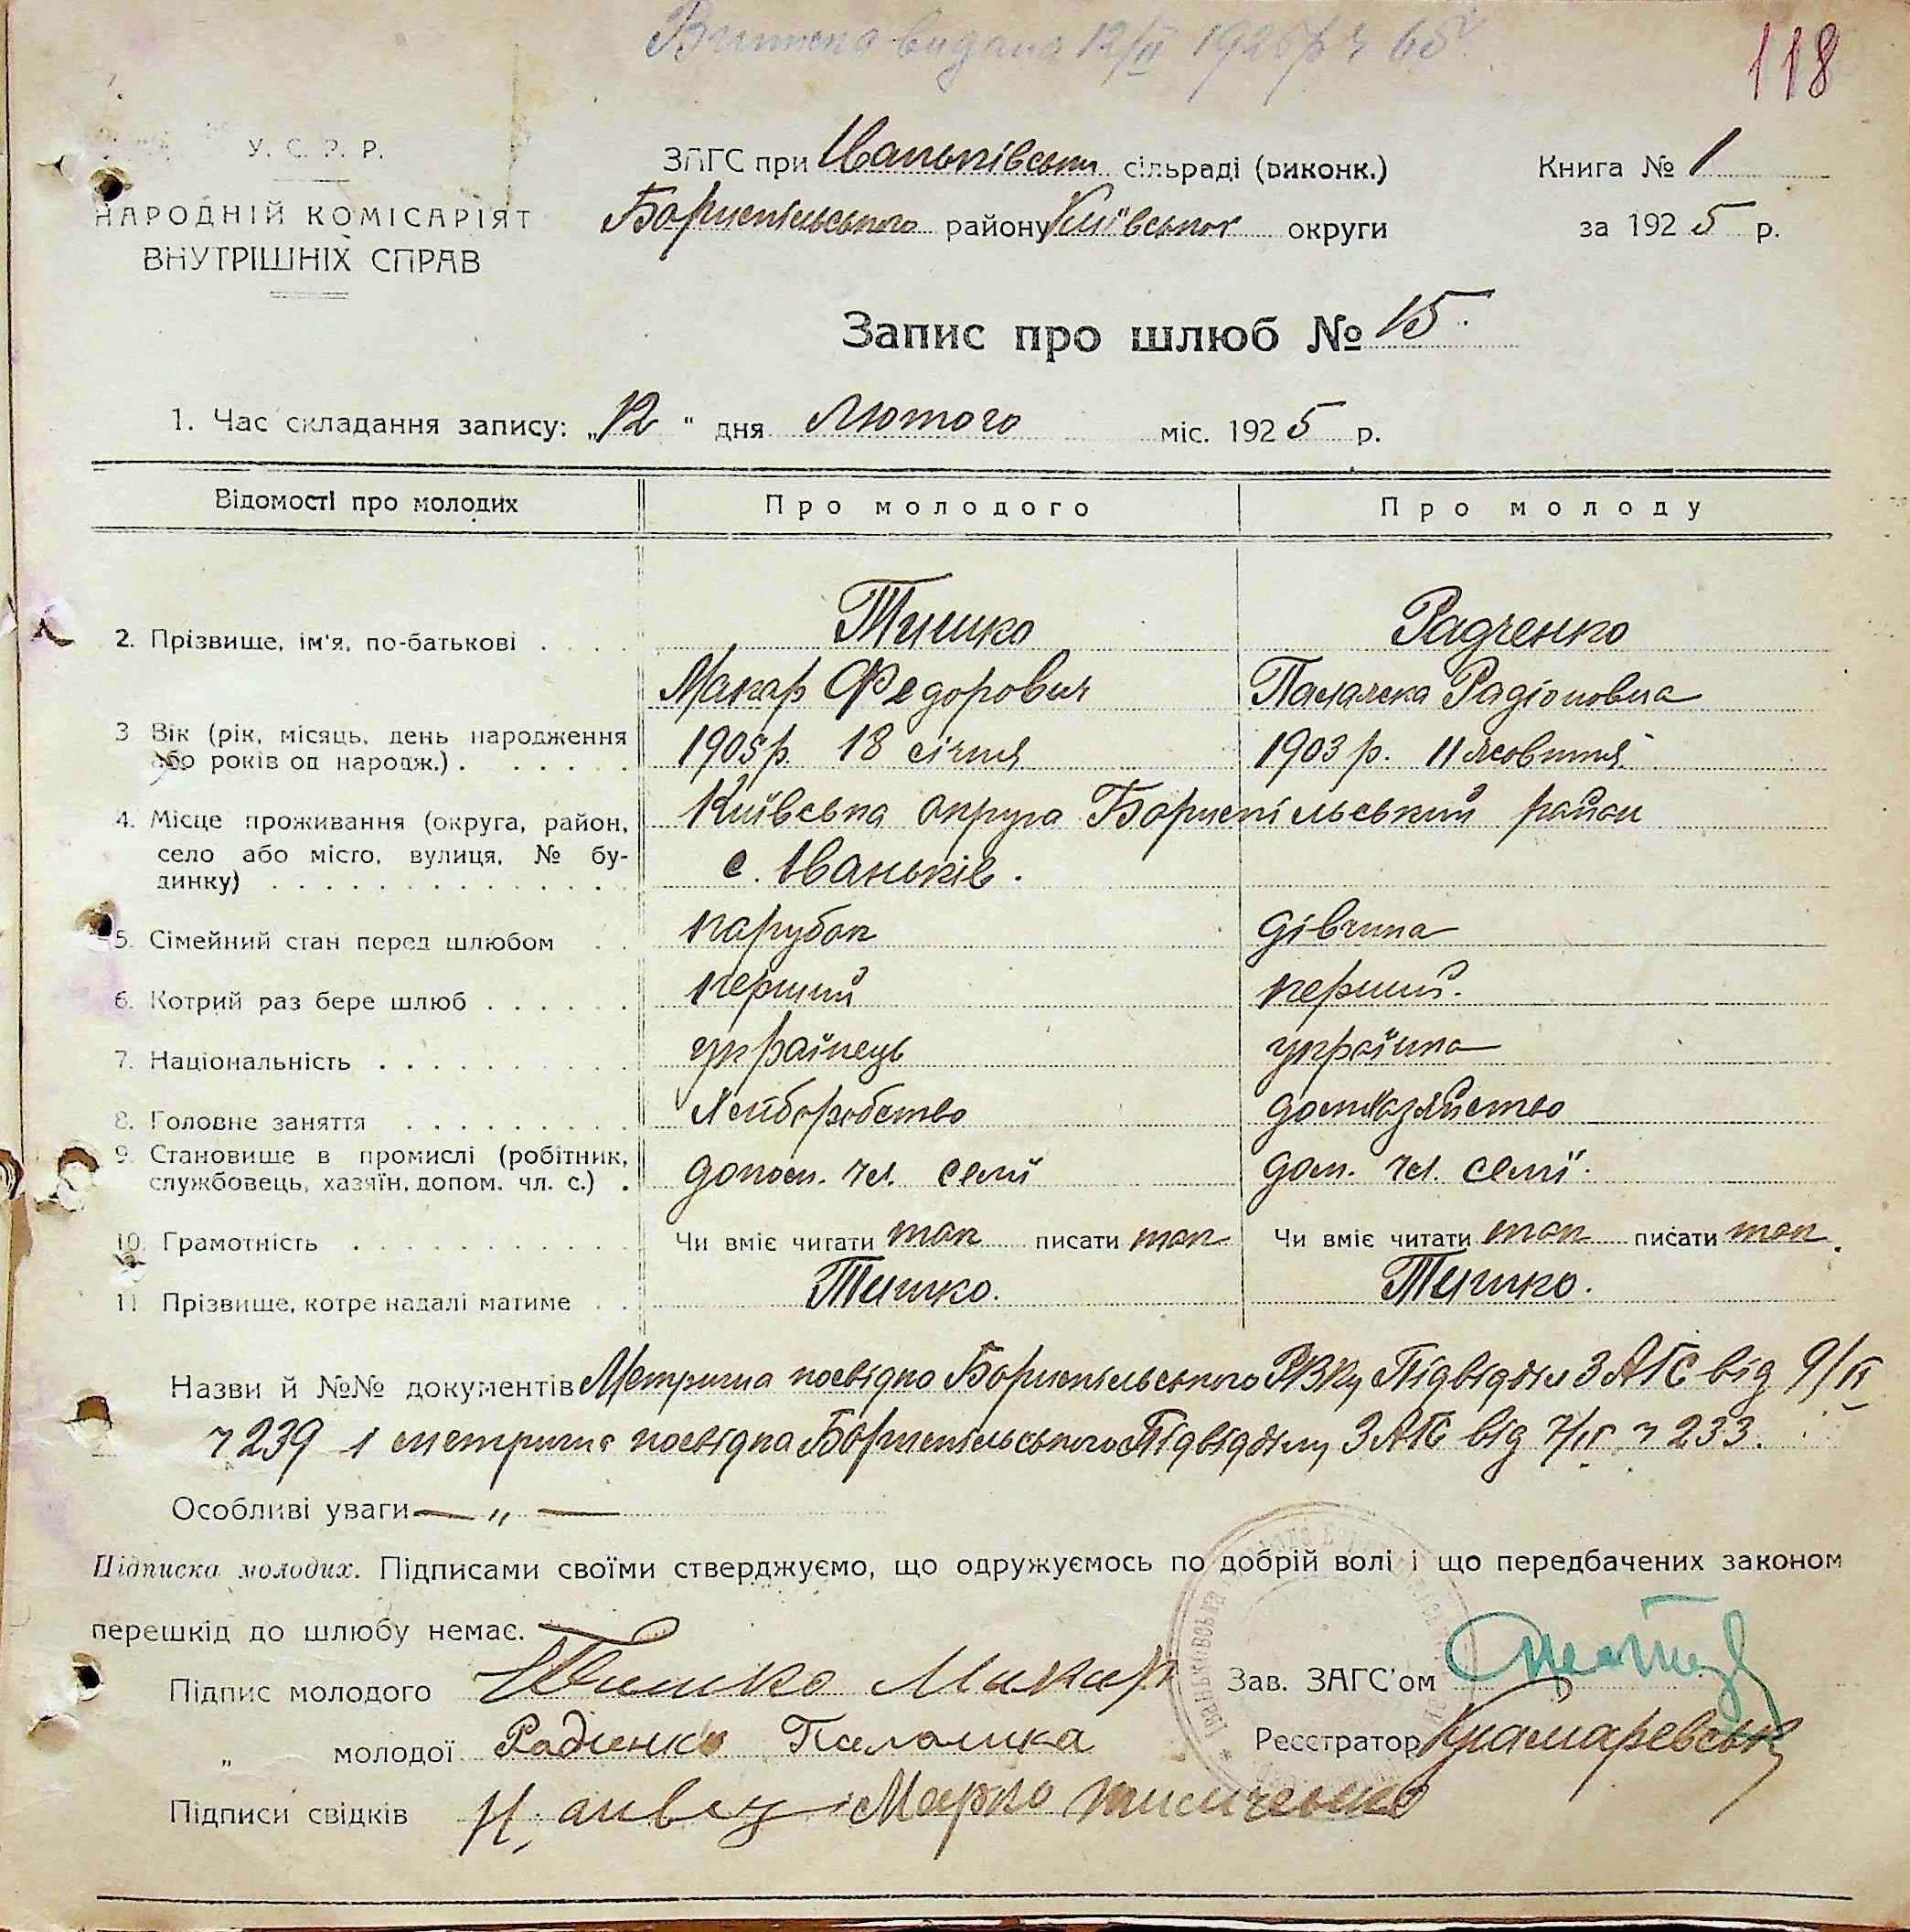 Виписка видана 12/II 1925 р ч 65
118
У. С. Р. Р.
НАРОДНІЙ КОМІСАРІЯТ
ВНУТРІШНІХ СПРАВ
ЗАГС при Іваньківськ. сільраді (виконк.)
Бориспільського району Київської округи
Книга № 1
за 1925 р.
Запис про шлюб № 15.
1. Час складання запису: „12" дня Лютого міс. 1925 р.
Відомості про молодих
Про молодого
Про молоду
2. Прізвище, ім'я, по-батькові . . . .
Тишко
Радченко
Макар Федорович
Палажка Радіоновна
3 Вік (рік, місяць, день народження
або років од народж.) . . . . . .
1905 р. 18 січня
1903 р. 11 жовтня
4. Місце проживання (округа, район,
село або місто, вулиця, № бу-
динку) . . . . . . . . . . . . . .
Київська округа Бориспільський район
с. Іваньків.
5. Сімейний стан перед шлюбом . .
парубок
дівчина
6. Котрий раз бере шлюб . . . . . .
перший
перший.
7. Національність . . . . . . . . . .
українець
українка
8. Головне заняття . . . . . . . . .
Хліборобство
домхазяйство
9. Становище в промислі (робітник,
службовець, хазяїн, допом. чл. с.) .
допом. чл. семї
доп. чл. семї.
10. Грамотність . . . . . . . . . . . .
Чи вміє читати так писати так
Чи вміє читати так писати так.
11 Прізвище, котре надалі матиме . .
Тишко.
Тишко.
Назви й №№ документів Метрична посвідка Бориспільського РВКу Підвідділ ЗАГС від 9/II
ч 239 і метрична посвідка Бориспільського Підвідділу ЗАГС від 7/II ч 233.
Особливі уваги — „ —
Підписка молодих. Підписами своїми стверджуємо, що одружуємось по добрій волі і що передбачених законом
перешкід до шлюбу немає.
Підпис молодого Тишко Макар
Зав. ЗАГС'ом
„ молодої Радченко Паламка
Реєстратор Крамаревськ
Підписи свідків Марко Тимченко